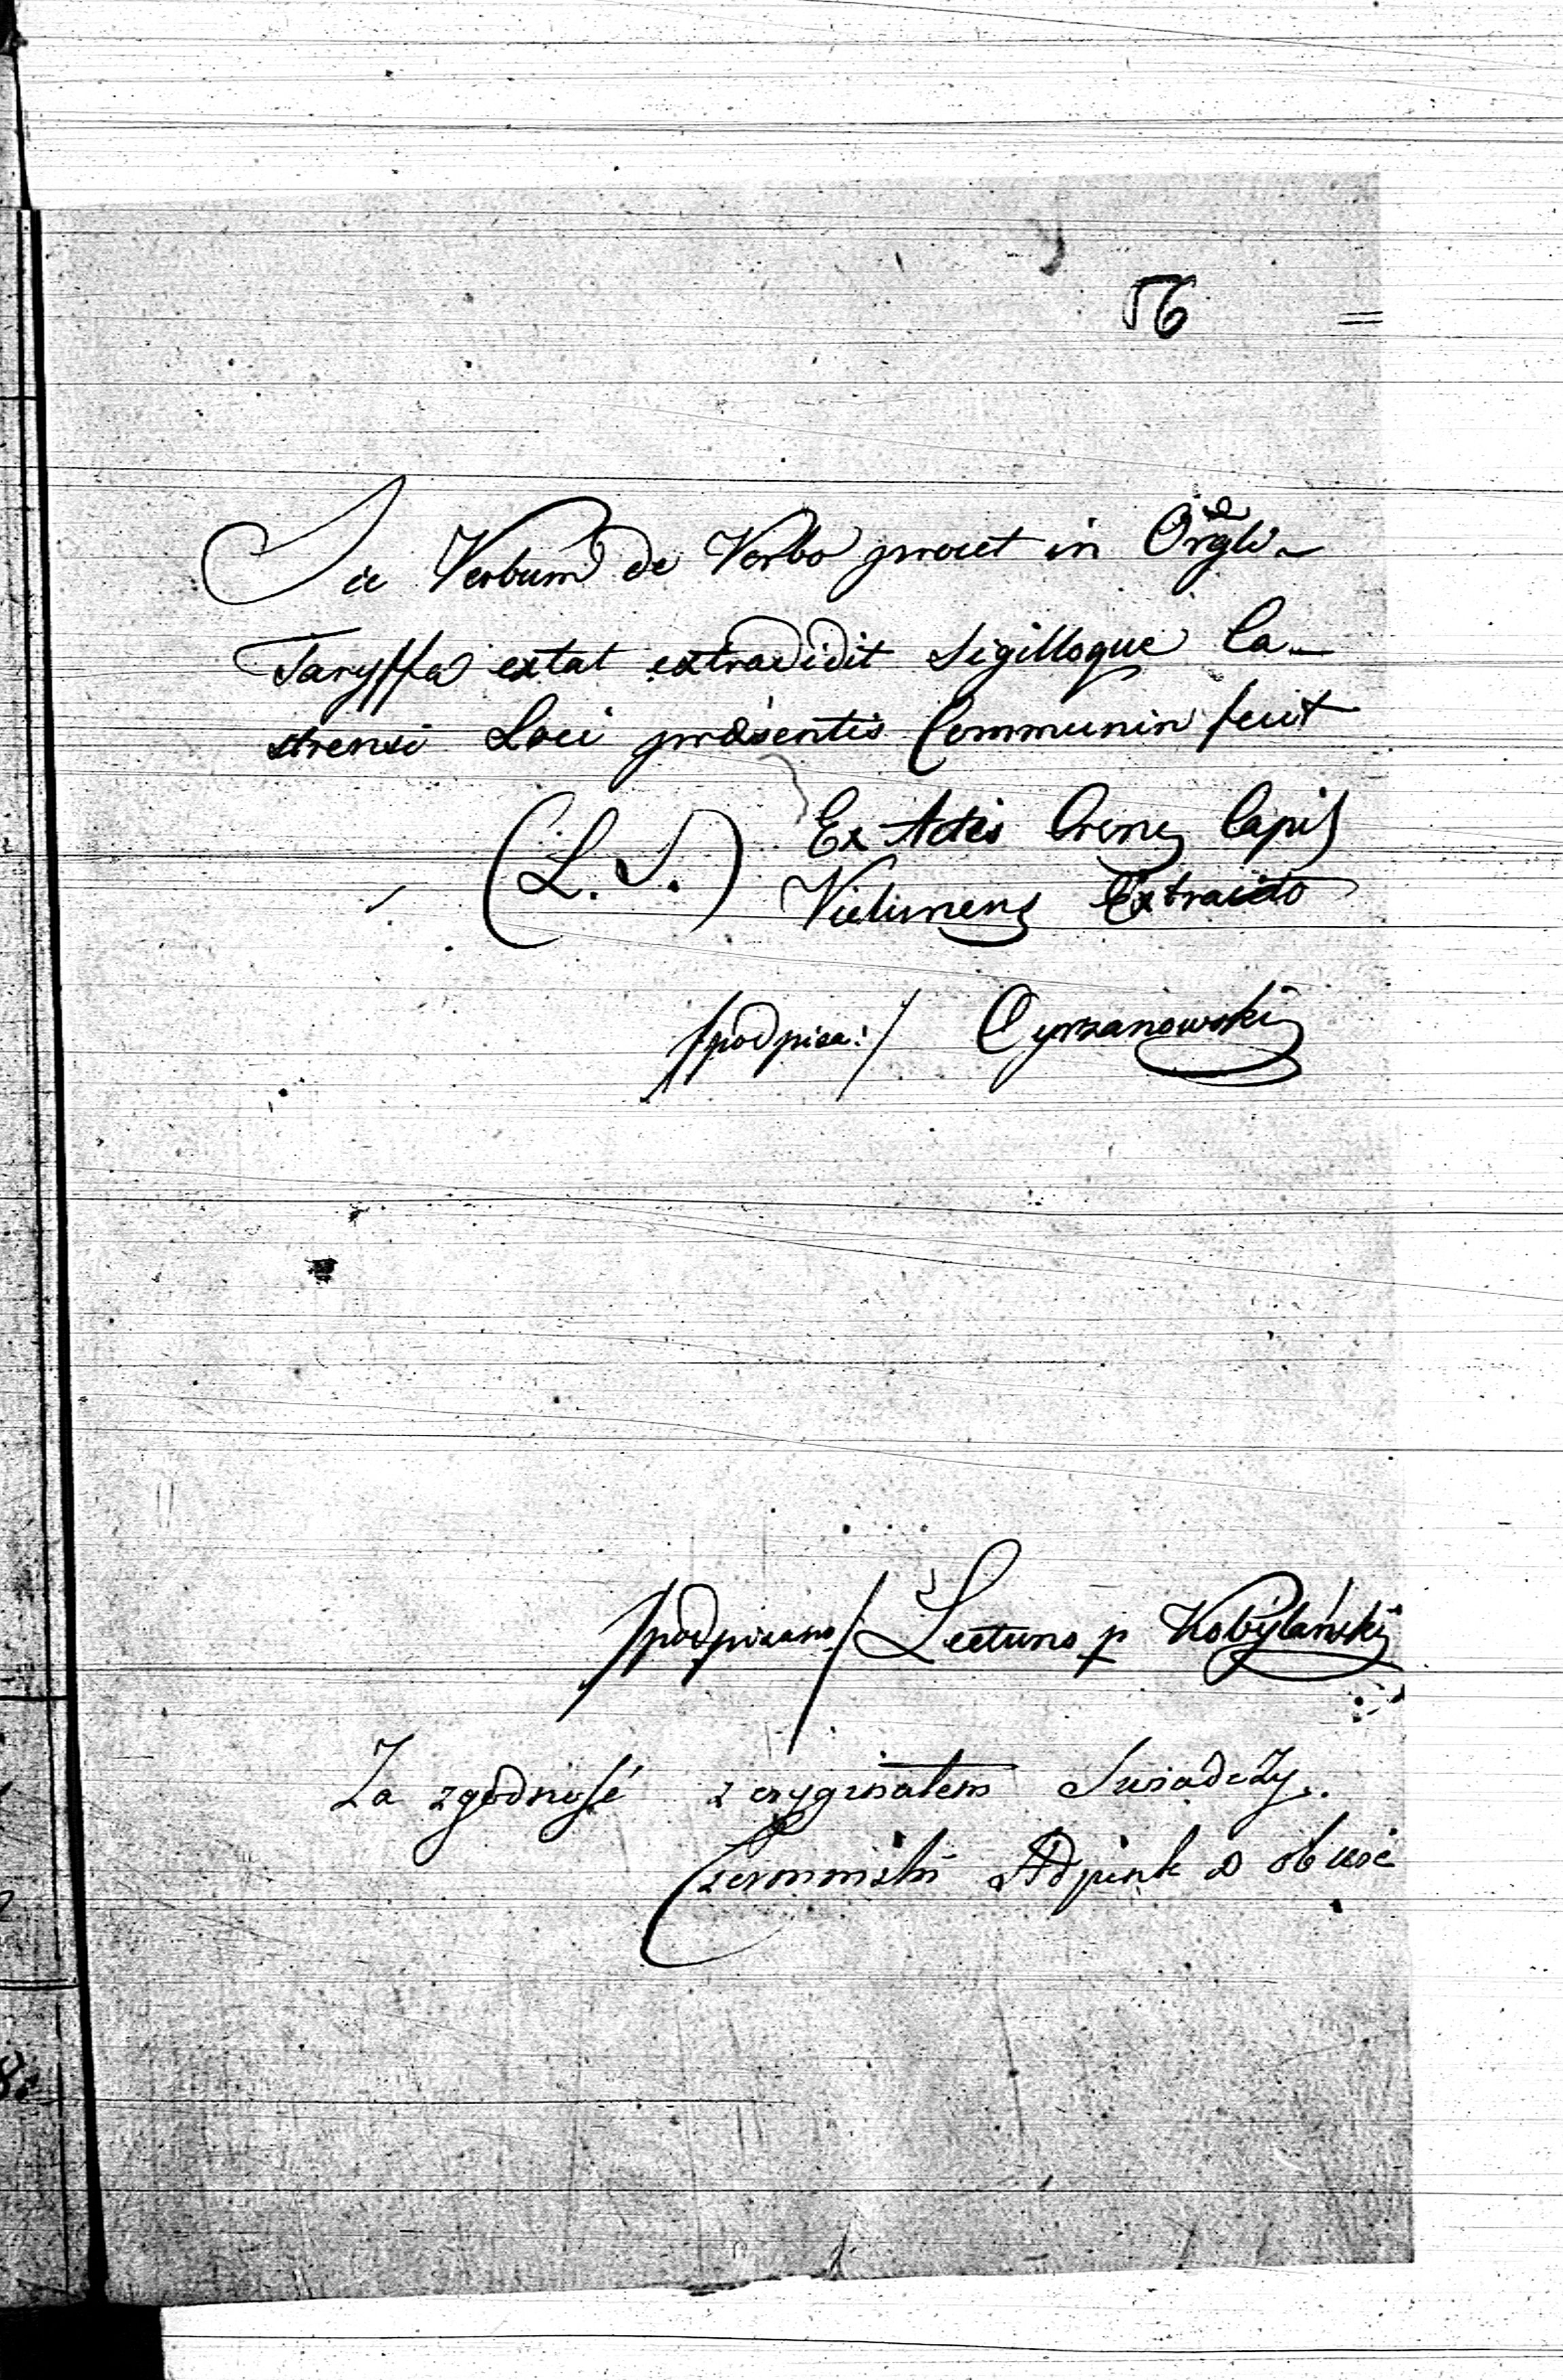 56
Sic Verbum de Verbo prout in Orgli
Taryffa extat extradidit Sigilloque Ca-
strensi Loci præsentis Communin fuit
(L. S.) Ex Actis Crens Capis
Vielunens Extraido
/podpisa:/ Cyrzanowski
/podpisano/ Lectuno p Kobylański
Za zgodność z oryginałem Swiadczy.
Czermiński Adjunk